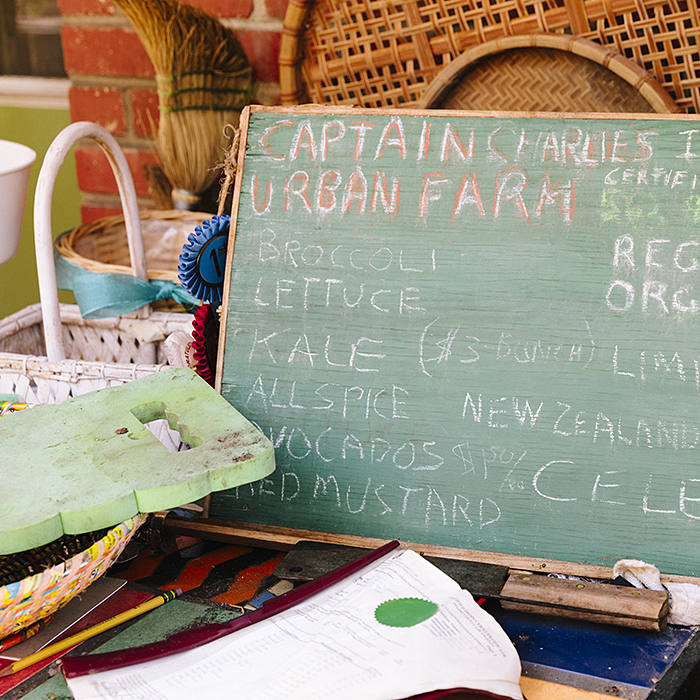 CAPTAIN CHARLIES I
URBAN FARM CERTIFI
BROCCOLI REG
LETTUCE ORG
KALE ($3 bunch) LIMI
ALLSPICE NEW ZEALAND
AVOCADOS
RED MUSTARD CELE
1